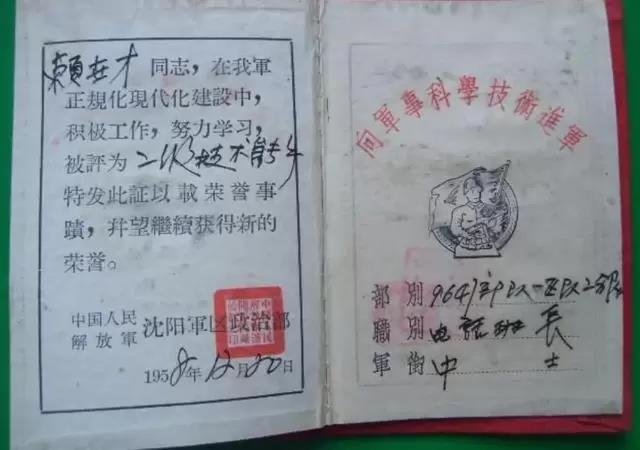 賴在才 同志，在我軍
正規化現代化建設中，
积极工作，努力学习，
被評为 二级技术能手
特发此証以載荣誉事
蹟，幷望繼續获得新的
荣誉。
中国人民
解放軍 沈阳軍区政治部
1958年12月20日
向軍事科學技術進軍
部別 9641部队一区队2分队
職別 电話班長
軍銜 中士